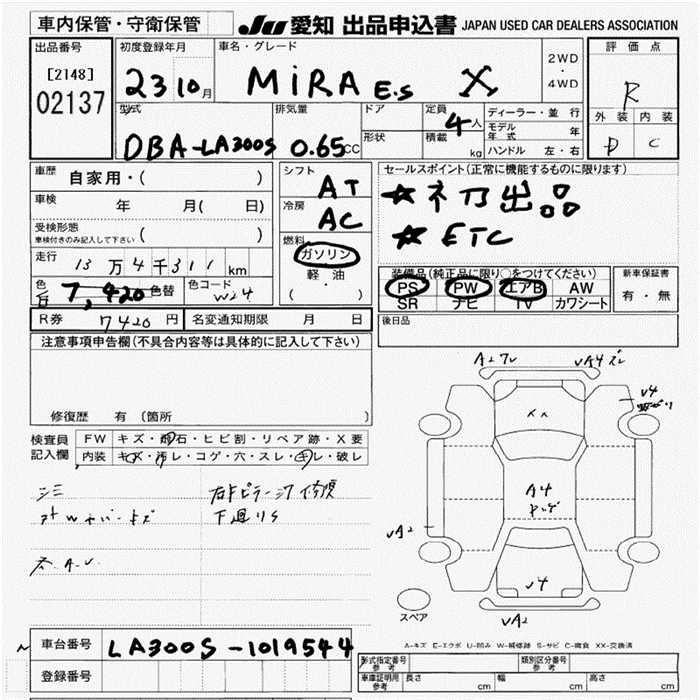 車内保管・守衛保管
JU 愛知 出品申込書 JAPAN USED CAR DEALERS ASSOCIATION
出品番号
[2148]
02137
初度登録年月
23 10月
車名・グレード
MiRA E.S X
2WD
・
4WD
評価点
R
外装 内装
D C
型式
DBA-LA300S
排気量
0.65CC
ドア
形状
定員
4人
積載
kg
ディーラー・並行
モデル年式 年
ハンドル 左・右
車歴
自家用・( )
車検
年 月( 日)
受検形態
車検付きのみ記入して下さい ( )
走行
13万4千311km
色
白
7,420
色替
色コード
W24
R券 7420円
名変通知期限 月 日
シフト
AT
冷房
AC
燃料
ガソリン
軽・油
( ・ )
セールスポイント(正常に機能するものに限ります)
★ネ乃出品
★ETC
装備品(純正品に限り○をつけてください)
PS PW エアB AW
SR ナビ TV カワシート
新車保証書
有・無
後日品
注意事項申告欄(不具合内容等は具体的に記入して下さい)
修復歴 有(箇所 )
検査員
記入欄
FW キズ・飛石・ヒビ割・リペア跡・X要
内装 キズ・汚レ・コゲ・穴・スレ・キレ・破レ
右Fピラー
下廻りS
A2
A4
v4
xx
A4
vA2
v4
vA2
スペア
A-キズ E-エクボ U-凹み W-補修跡 S-サビ C-腐食 XX-交換済
車台番号
LA300S-1019544
登録番号
形式指定番号
参考
類別区分番号
参考
車庫証明用
参考
長さ cm
幅 cm
高さ cm